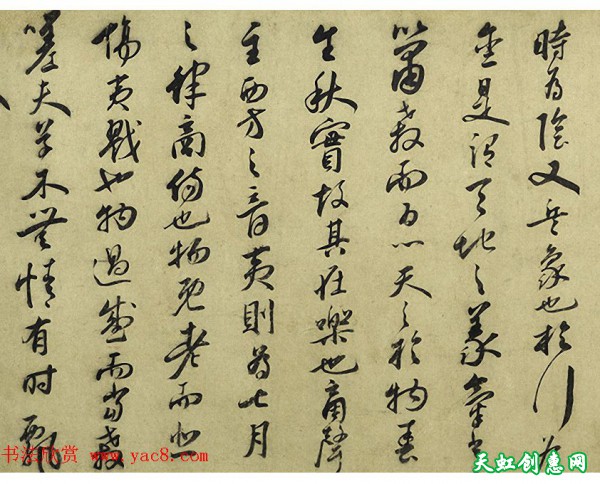 時為陰又兵象也於行為
金是謂天地之義氣常
以肅殺而為心天之於物春
生秋實故其在樂也商聲
主西方之音夷則為七月
之律商傷也物既老而悲
傷夷戮也物過盛而當殺
嗟夫草木無情有時飄
书法欣赏 www.yac8.com
天虹创意网